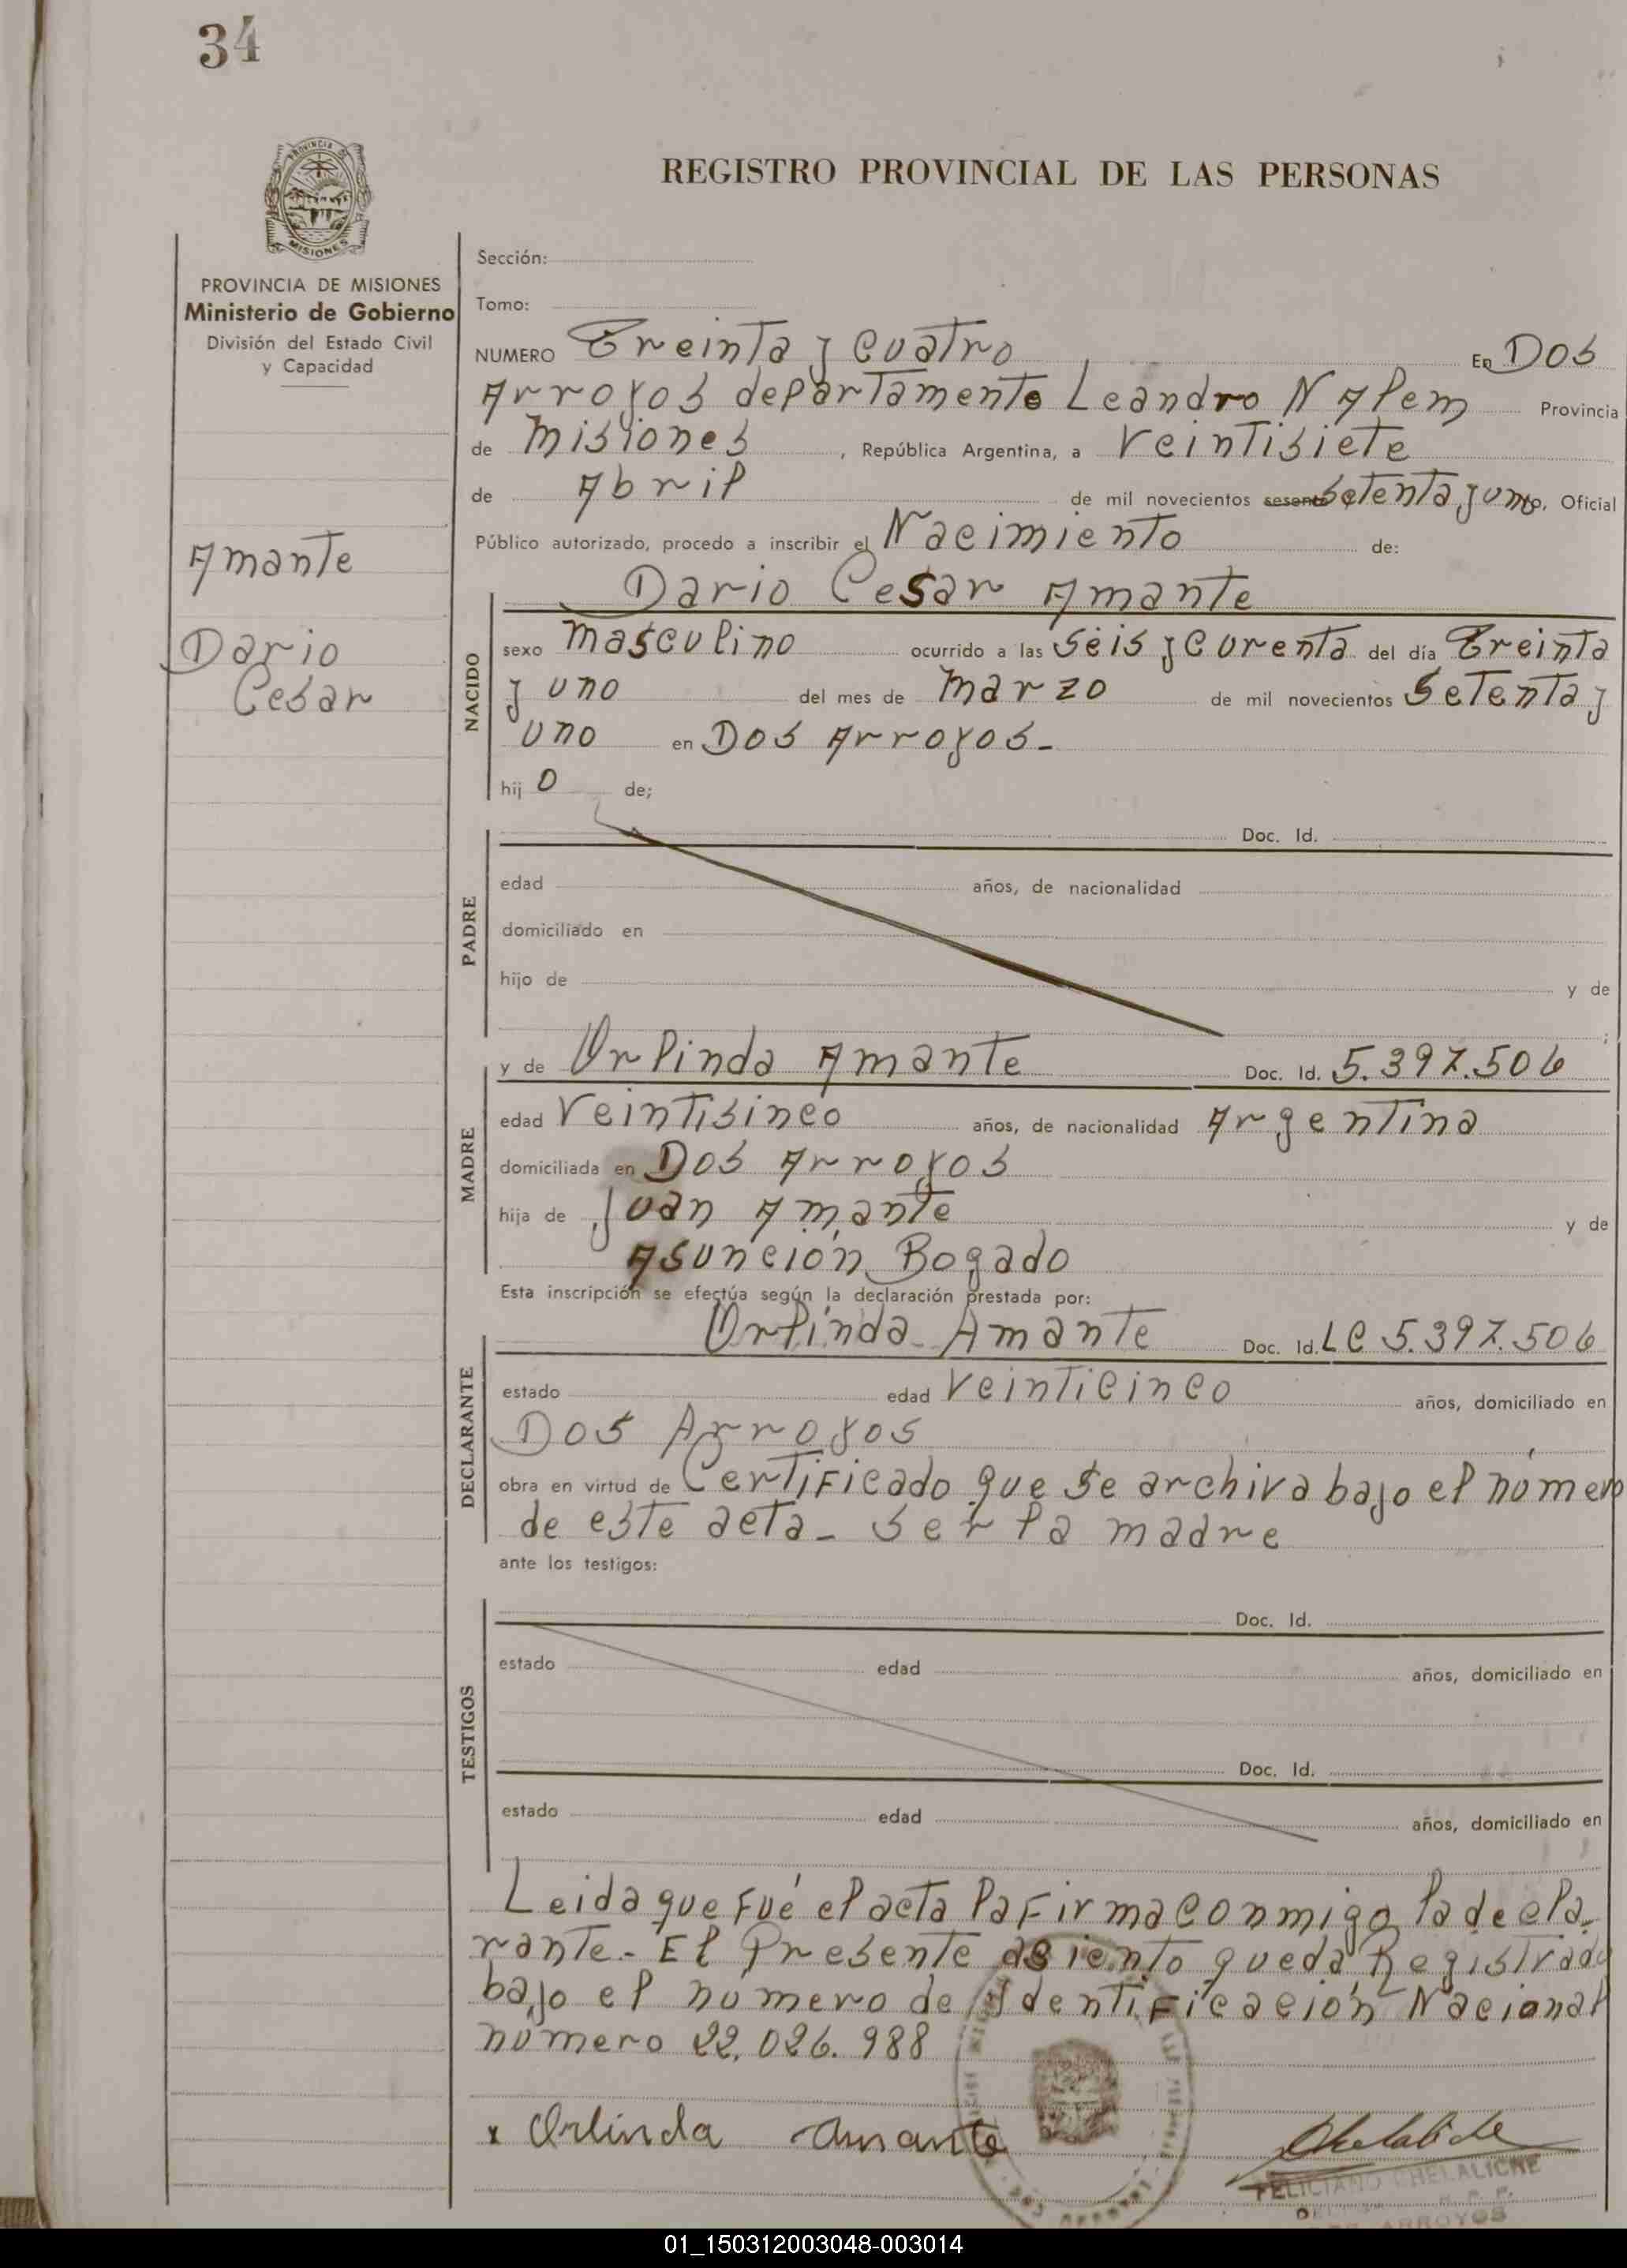 34
PROVINCIA DE
MISIONES
REGISTRO PROVINCIAL DE LAS PERSONAS
PROVINCIA DE MISIONES
Ministerio de Gobierno
División del Estado Civil
y Capacidad
Amante
Dario
Cesar
Sección:
Tomo:
NUMERO Treinta y cuatro En Dos
Arroyos departamento Leandro N Alem Provincia
de Misiones, República Argentina, a veintisiete
de Abril de mil novecientos sesenta setenta y uno, Oficial
Público autorizado, procedo a inscribir el Nacimiento de:
Dario Cesar Amante
NACIDO
sexo masculino ocurrido a las seis y curenta del día Treinta
y uno del mes de marzo de mil novecientos setenta y
uno en Dos Arroyos.-
hijo de;
PADRE
Doc. Id.
edad años, de nacionalidad
domiciliado en
hijo de y de
;
MADRE
y de Orlinda Amante Doc. Id. 5.397.506
edad veintisinco años, de nacionalidad Argentina
domiciliada en Dos Arroyos
hija de Juan Amante y de
Asunción Bogado
Esta inscripción se efectúa según la declaración prestada por:
DECLARANTE
Orlinda Amante Doc. Id. LC 5.397.506
estado edad veinticinco años, domiciliado en
Dos Arroyos
obra en virtud de Certificado que se archiva bajo el número
de este acta- ser la madre
ante los testigos:
TESTIGOS
Doc. Id.
estado edad años, domiciliado en
Doc. Id.
estado edad años, domiciliado en
Leida que fué el acta la firma conmigo la decla-
rante.- El Presente asiento queda Registrado
bajo el número de Identificación Nacional
número 22.026.988
x Orlinda Amante
Chelaliche
FELICIANO CHELALICHE
ARROYOS
01_150312003048-003014